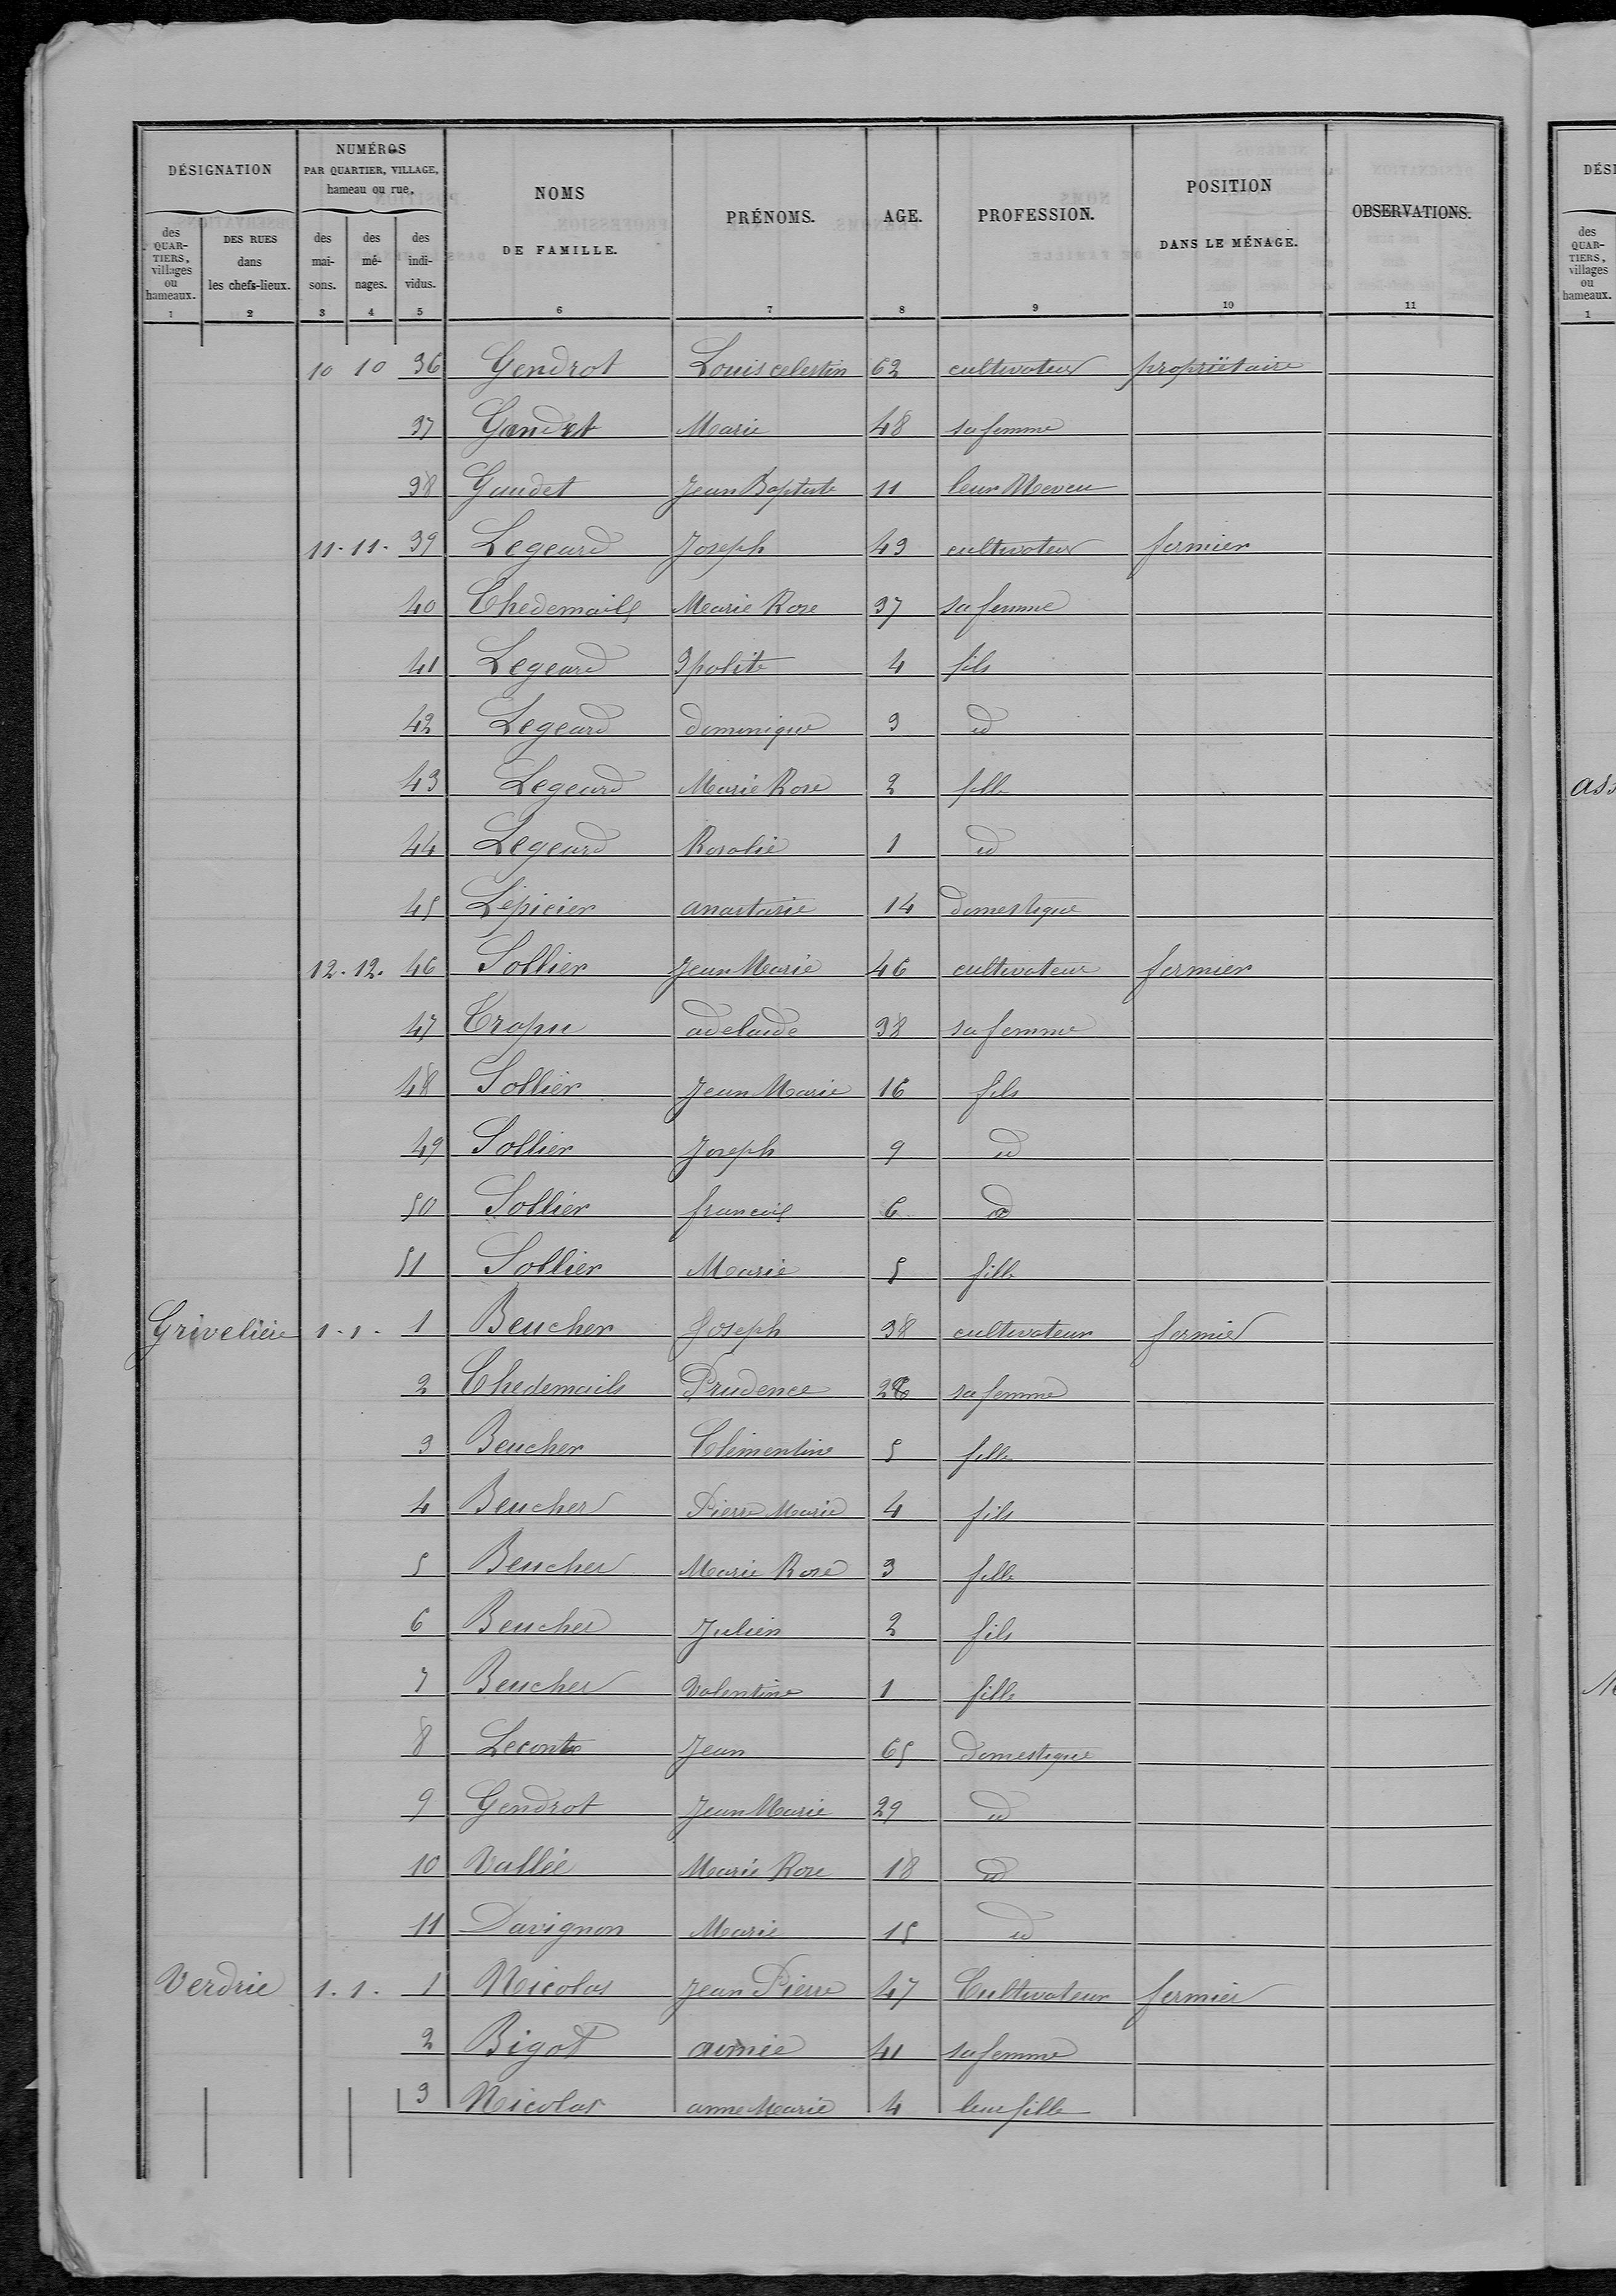 DÉSIGNATION
NUMÉROS
PAR QUARTIER, VILLAGE,
hameau ou rue,
NOMS
DE FAMILLE.
PRÉNOMS.
AGE.
PROFESSION.
POSITION
DANS LE MÉNAGE.
OBSERVATIONS.
des QUAR-TIERS, villages ou hameaux.
DES RUES dans les chefs-lieux.
des mai-sons.
des mé-nages.
des indi-vidus.
1 2 3 4 5 6 7 8 9 10 11
10 10 36 Gendrot Louis celestin 62 cultivateur propriétaire
37 Gaudet Marie 48 sa femme
38 Gaudet Jean Baptiste 11 leur Neveu
11. 11. 39 Legeard Joseph 43 cultivateur fermier
40 Chedemails Marie Rose 37 sa femme
41 Legeard Ipolite 4 fils
42 Legeard dominique 3 id
43 Legeard Marie Rose 2 fille
44 Legeard Rosalie 1 id
45 Lépicier anastasie 14 domestique
12. 12. 46 Sollier Jean Marie 46 cultivateur fermier
47 Trapu adelaide 38 sa femme
48 Sollier Jean Marie 16 fils
49 Sollier Joseph 9 id
50 Sollier francois 6 id
51 Sollier Marie 5 fille
Grivelière 1. 1. 1 Beucher Joseph 38 cultivateur fermier
2 Chedemails Prudence sa femme
3 Beucher Clémentine 5 fille
4 Beucher Pierre Marie 4 fils
5 Beucher Marie Rose 3 fille
6 Beucher Julien 2 fils
7 Beucher Valentine 1 fille
8 Leconte Jean 65 domestique
9 Gendrot Jean Marie 29 id
10 Vallée Marie Rose 18 id
11 Davignon Marie 15 id
Verdrie 1. 1. 1 Nicolas Jean Pierre 47 Cultivateur fermier
2 Bigot aimée 41 sa femme
3 Nicolas anne Marie 4 leur fille
DÉSI
des QUAR-TIERS, villages ou hameaux.
1
ass